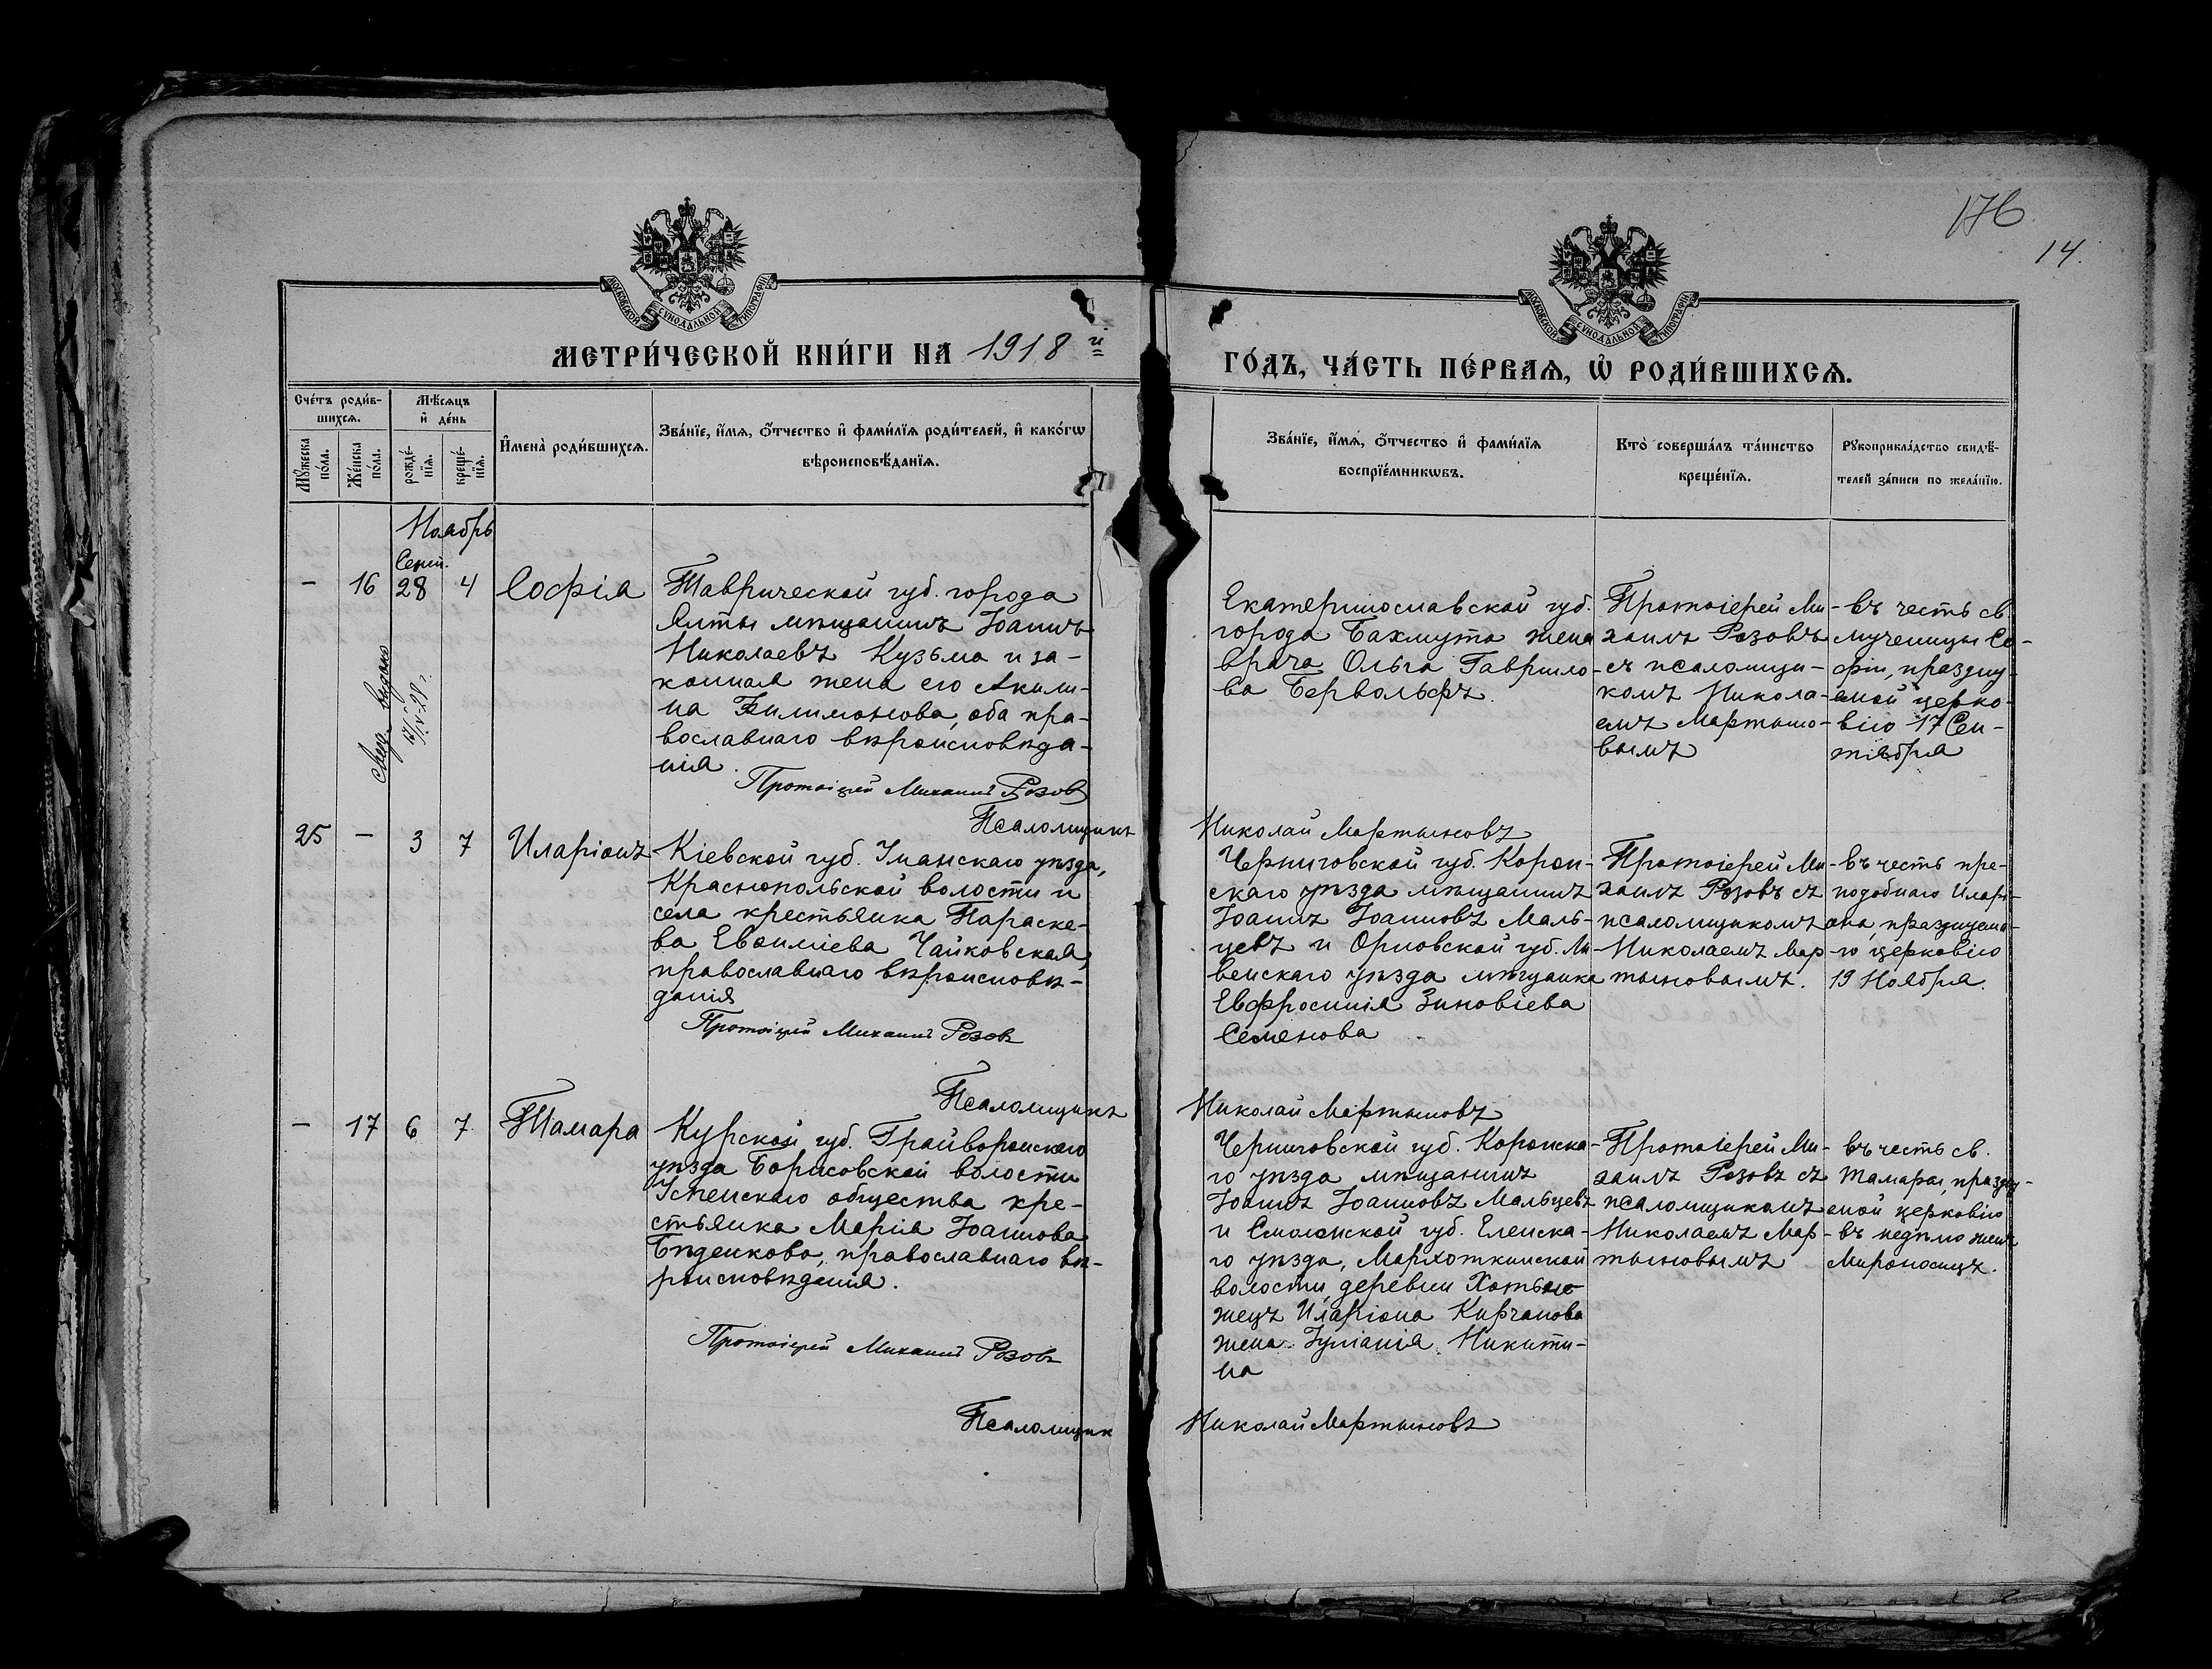 176
14.
МОСКОВСКОЙ СУНОДАЛЬНОЙ ТИПОГРАФІИ
МОСКОВСКОЙ СУНОДАЛЬНОЙ ТИПОГРАФІИ
МЕТРИ́ЧЕСКОЙ КНИ́ГИ НА 1918 й
ГО́ДЪ, ЧА́СТЬ ПЕ́РВАѦ, Ѡ҆ РОДИ́ВШИХСѦ.
Сче́тъ роди́в-
шихсѧ.
Мѣ́сѧцъ
и҆ де́нь
Мꙋ́жеска
по́ла.
Же́нска
по́ла.
рожде́-
нїѧ.
креще́-
нїѧ.
И҆мена̀ роди́вшихсѧ.
Зва́нїе, и҆́мѧ, ѻ҆́тчество и҆ фами́лїѧ роди́телей, и҆ како́гѡ
вѣроисповѣ́данїѧ.
Зва́нїе, и҆́мѧ, ѻ҆́тчество и҆ фами́лїѧ
воспрїе́мникѡвъ.
Кто̀ соверша́лъ та́инство
креще́нїѧ.
Рꙋкоприкла́дство свидѣ́-
телей за́писи по жела́нїю.
Ноябрь
Сент.
— 16 28 4 Софія
Таврической губ. города
Ялты мѣщанинъ Іоаннъ
Николаевъ Кузьма и за-
конная жена его Акили-
на Филимонова, оба пра-
вославнаго вѣроисповѣда-
нія.
Протоіерей Михаилъ Розов
Псаломщикъ
Екатеринославской губ.
города Бахмута жена
врача Ольга Гаврило-
ва Бервольфъ.
Протоіерей Ми-
хаилъ Розовъ
съ псаломщи-
комъ Никола-
емъ Мартыно-
вымъ
въ честь св.
мученицы Со-
фіи, праздну-
емой церко-
вію 17 Сен-
тября
Николай Мартыновъ
25 — 3 7 Иларіонъ
Кіевской губ. Уманскаго уѣзда,
Краснопольской волости и
села крестьянка Параске-
ва Евѳиміева Чайковская,
православнаго вѣроисповѣ-
данія
Протоіерей Михаилъ Розовъ
Псаломщикъ
Черниговской губ. Корон-
скаго уѣзда мѣщанинъ
Іоаннъ Іоанновъ Маль-
цевъ и Орловской губ. Ли-
венскаго уѣзда мѣщанка
Евфросинія Зиновіева
Семенова
Протоіерей Ми-
хаилъ Розовъ съ
псаломщикомъ
Николаемъ Мар-
тыновымъ.
въ честь пре-
подобнаго Иларі-
она, празднуема-
го церковію
19 Ноября.
Николай Мартыновъ
— 17 6 7 Тамара
Курской губ. Грайворонскаго
уѣзда Борисовской волости
Успенскаго общества кре-
стьянка Марія Іоаннова
Бѣденкова, православнаго вѣ-
роисповѣданія.
Протоіерей Михаилъ Розовъ
Псаломщик
Черниговской губ. Коронска-
го уѣзда мѣщанинъ
Іоаннъ Іоанновъ Мальцевъ
и Смоленской губ. Еленска-
го уѣзда, Мархоткинской
волости, деревни
Иларіона Кирчанова
жена Іуліанія Никити-
на
Протоіерей Ми-
хаилъ Розовъ съ
псаломщикомъ
Николаемъ Мар-
тыновымъ
въ честь св.
Тамары, праздну-
емой церковію
въ недѣлю женъ
Мироносицъ.
Николай Мартыновъ